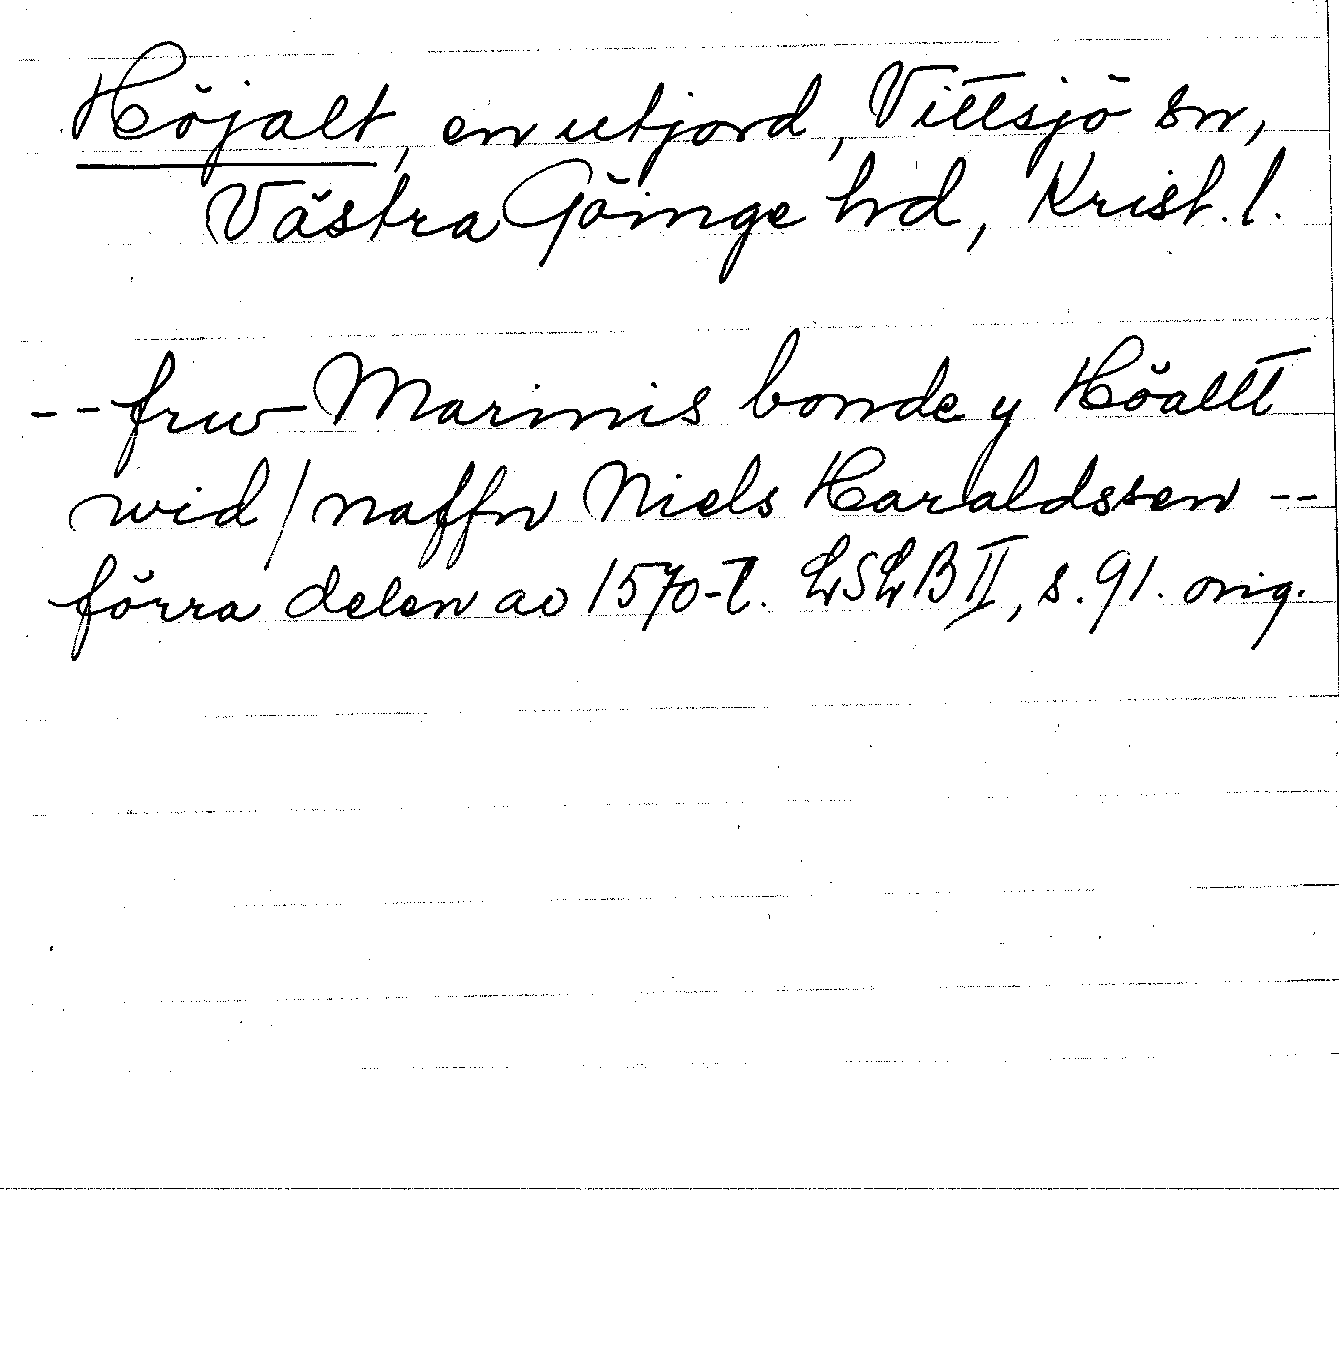 Höjalt, en utjord, Vittsjö sn,
Västra Göinge hd, Krist. l.
-- frw Marinis bonde y Höallt
wid / naffn Niels Haraldssen --
förra delen av 1570-t. LSLB II, s. 91. orig.